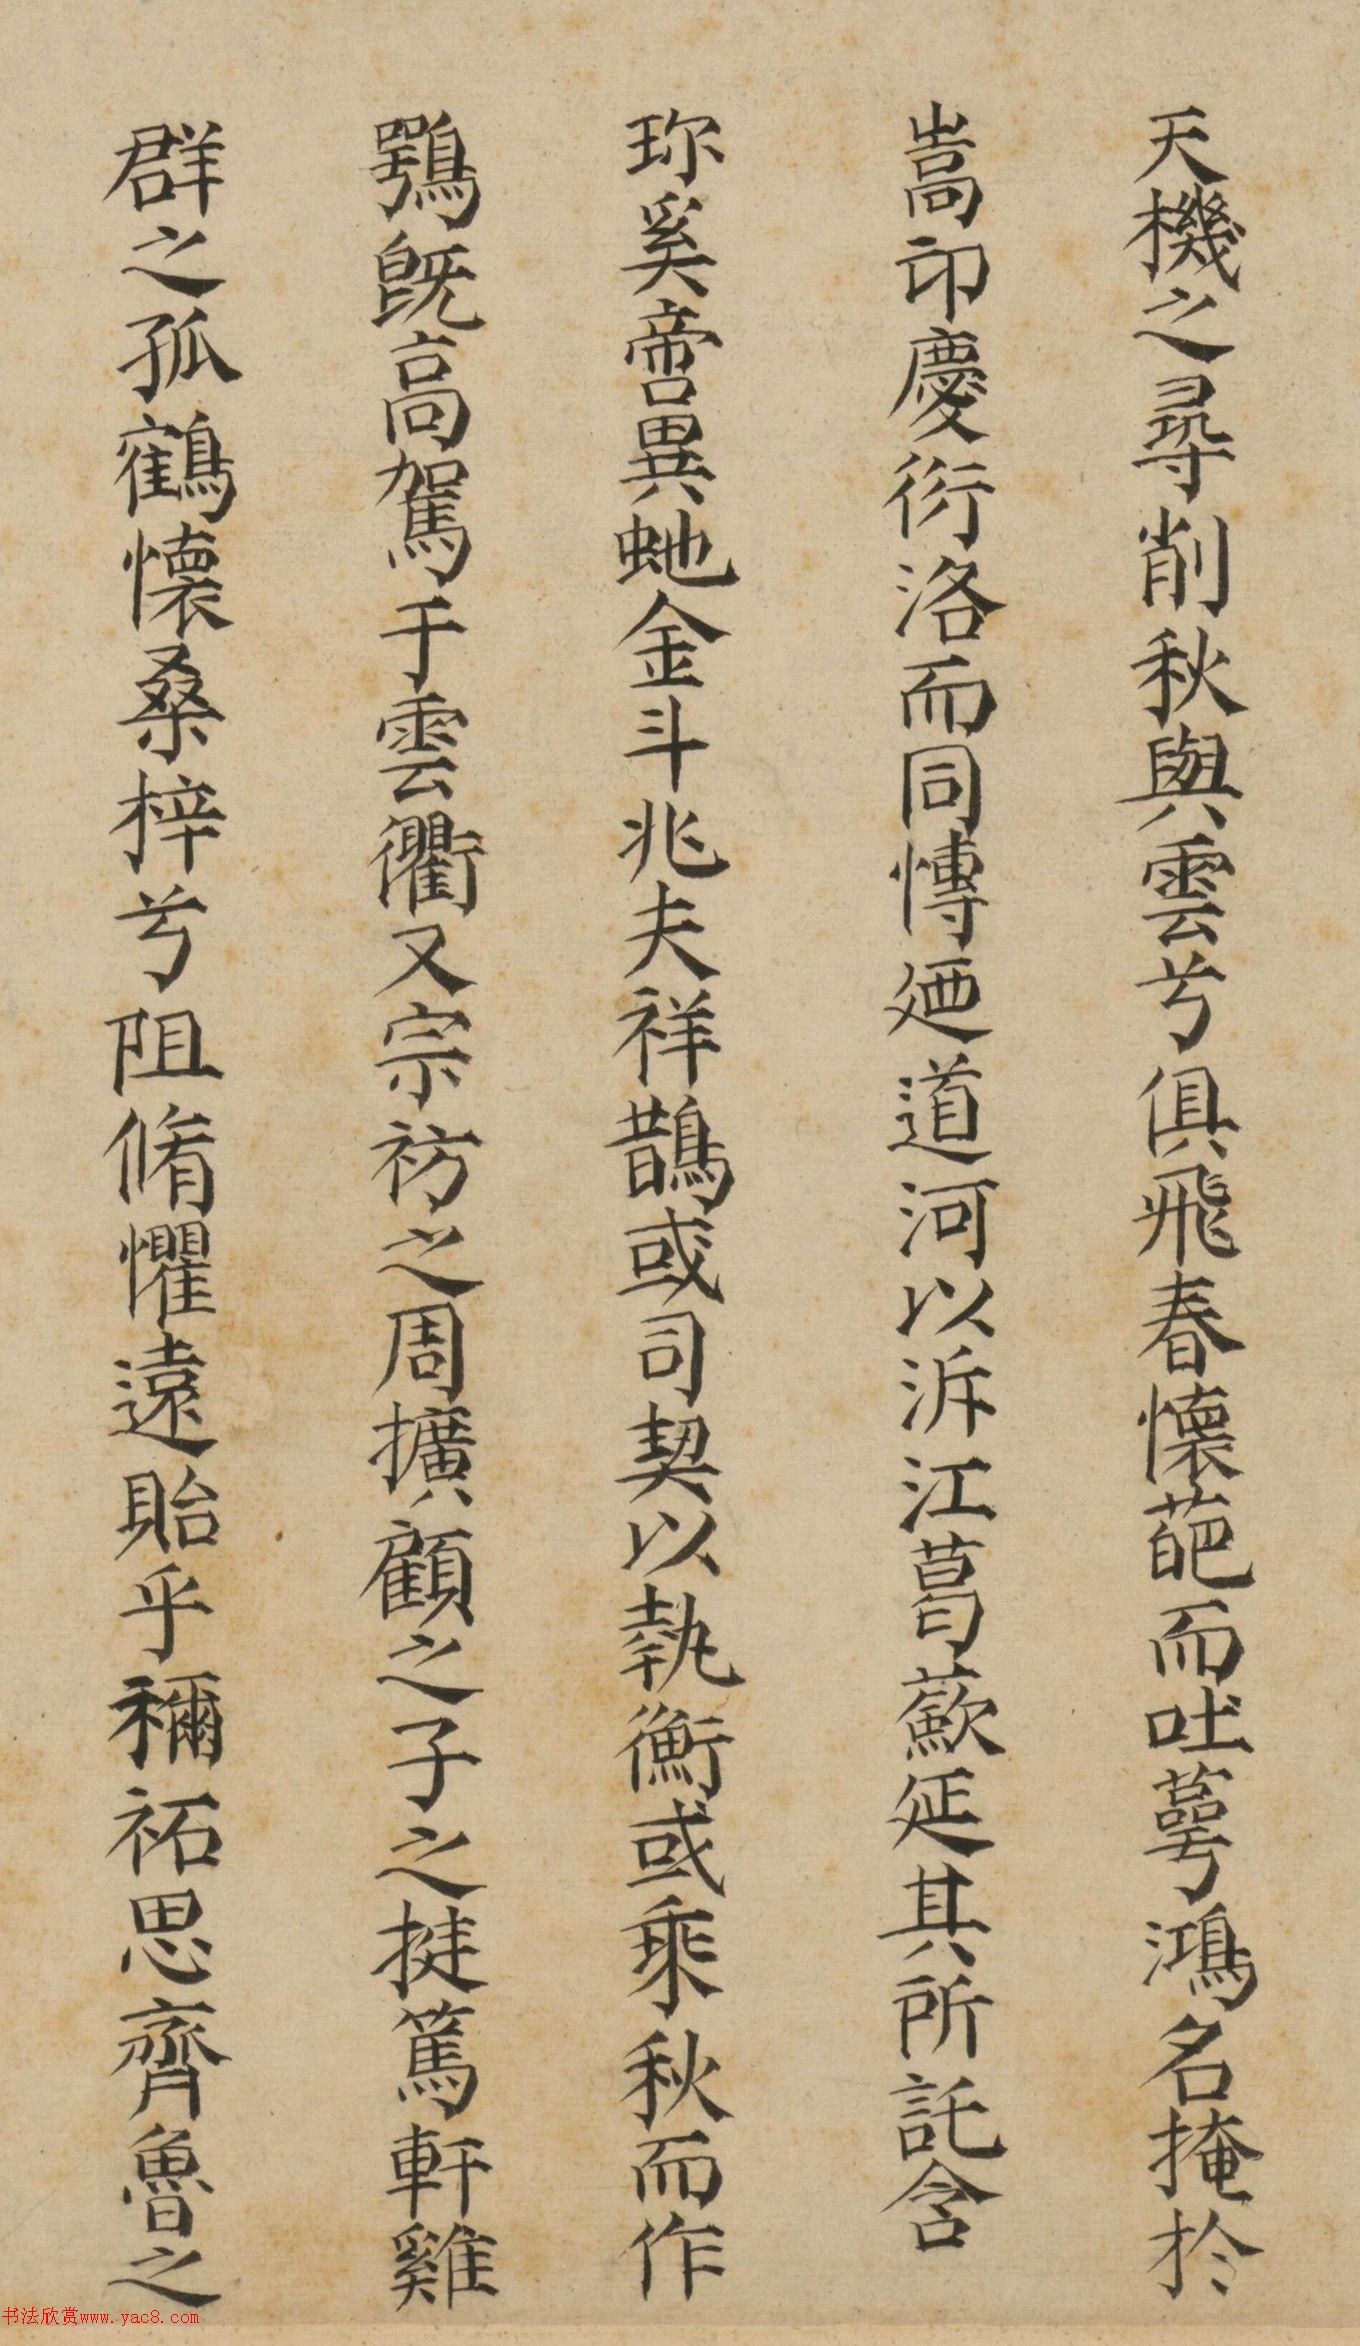 天機之尋削秋與雲兮俱飛春懷葩而吐蕚鴻名掩於
嵩卬慶衍洛而同慱廼道河以泝江葛藤延其所託含
珎奚啻異虵金斗兆夫祥鵲或司契以執衡或乘秋而作
鶚旣高駕于雲衢又宗祊之周擴顧之子之揵篤軒雞
群之孤鶴懷桑梓兮阻脩懼遠貽乎禰祏思齊魯之
书法欣赏www.yac8.com